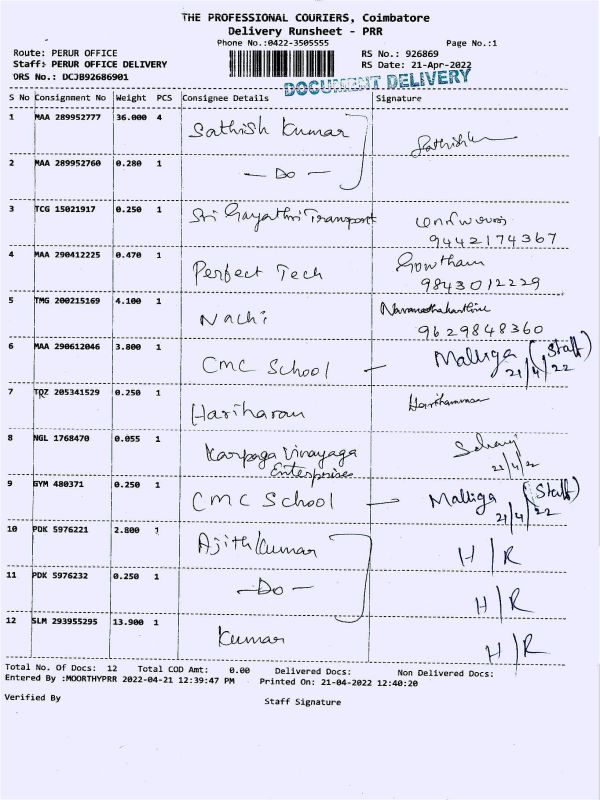 THE PROFESSIONAL COURIERS, Coimbatore
Delivery Runsheet - PRR
Phone No.:0422-3505555 Page No.:1
Route: PERUR OFFICE RS No.: 926869
Staff: PERUR OFFICE DELIVERY RS Date: 21-Apr-2022
ORS No.: DCJB92686901
DOCUMENT DELIVERY
S No Consignment No Weight PCS Consignee Details Signature
1 MAA 289952777 36.000 4 Sathish Kumar
2 MAA 289952760 0.280 1 — Do —
3 TCG 15021917 0.250 1 Sri Gayathri Transport
9442174367
4 MAA 290412225 0.470 1 Perfect Tech Gowtham
9843012229
5 TMG 200215169 4.100 1 Nachi
9629848360
6 MAA 290612046 3.800 1 CMC School — Malliga (Staff)
21/4/22
7 TQZ 205341529 0.250 1 Hariharan
8 NGL 1768470 0.055 1 Karpaga Vinayaga
Enterprises 21/4/22
9 GYM 480371 0.250 1 CMC School — Malliga (Staff)
21/4/22
10 PDK 5976221 2.800 1 Ajith Kumar H/R
11 PDK 5976232 0.250 1 — Do — H/R
12 SLM 293955295 13.900 1 Kumar H/R
Total No. Of Docs: 12 Total COD Amt: 0.00 Delivered Docs: Non Delivered Docs:
Entered By :MOORTHYPRR 2022-04-21 12:39:47 PM Printed On: 21-04-2022 12:40:20
Verified By Staff Signature